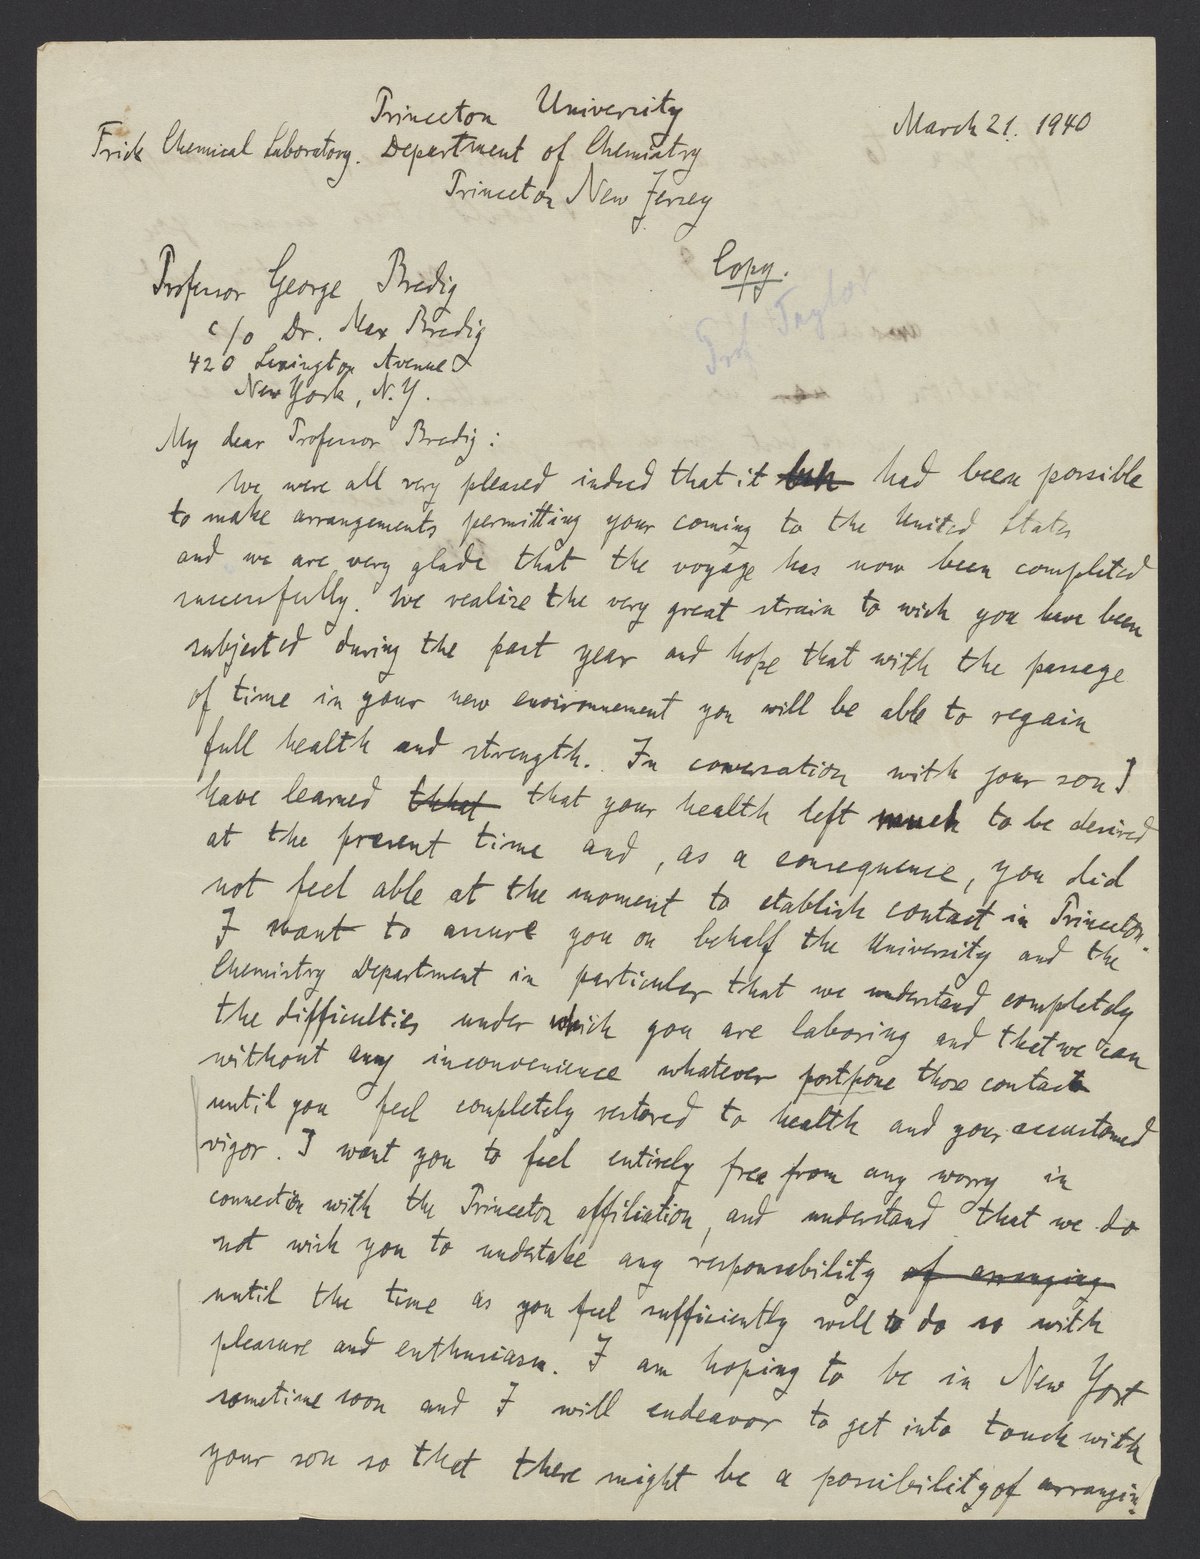 Princeton University
March 21. 1940
Frick Chemical Laboratory. Department of Chemistry
Princeton New Jersey
Copy.
Prof Taylor
Professor George Bredig
c/o Dr. Max Bredig
420 Lexington Avenue
New York, N.Y.
My dear Professor Bredig:
We were all very pleased indeed that it had been possible
to make arrangements permitting your coming to the United States
and we are very glade that the voyage has now been completed
successfully. We realize the very great strain to wich you have been
subjected during the past year and hope that with the passage
of time in your new environnement you will be able to regain
full health and strength. In conversation with your son I
have learned that that your health left much to be desired
at the present time and, as a consequence, you did
not feel able at the moment to etablish contact in Princeton.
I want to assure you on behalf the University and the
Chemistry Department in particular that we understand completely
the difficulties under which you are laboring and that we can
without any inconvenience whatever postpone those contact
until you feel completely restored to health and your accustomed
vigor. I want you to feel entirely free from any worry in
connection with the Princeton affiliation, and understand that we do
not wish you to undertake any responsability of arranging
until the time as you feel sufficiently well to do so with
pleasure and enthusiasm. I am hoping to be in New York
sometime soon and I will endeavor to get into touch with
your son so that there might be a possibility of arrangin